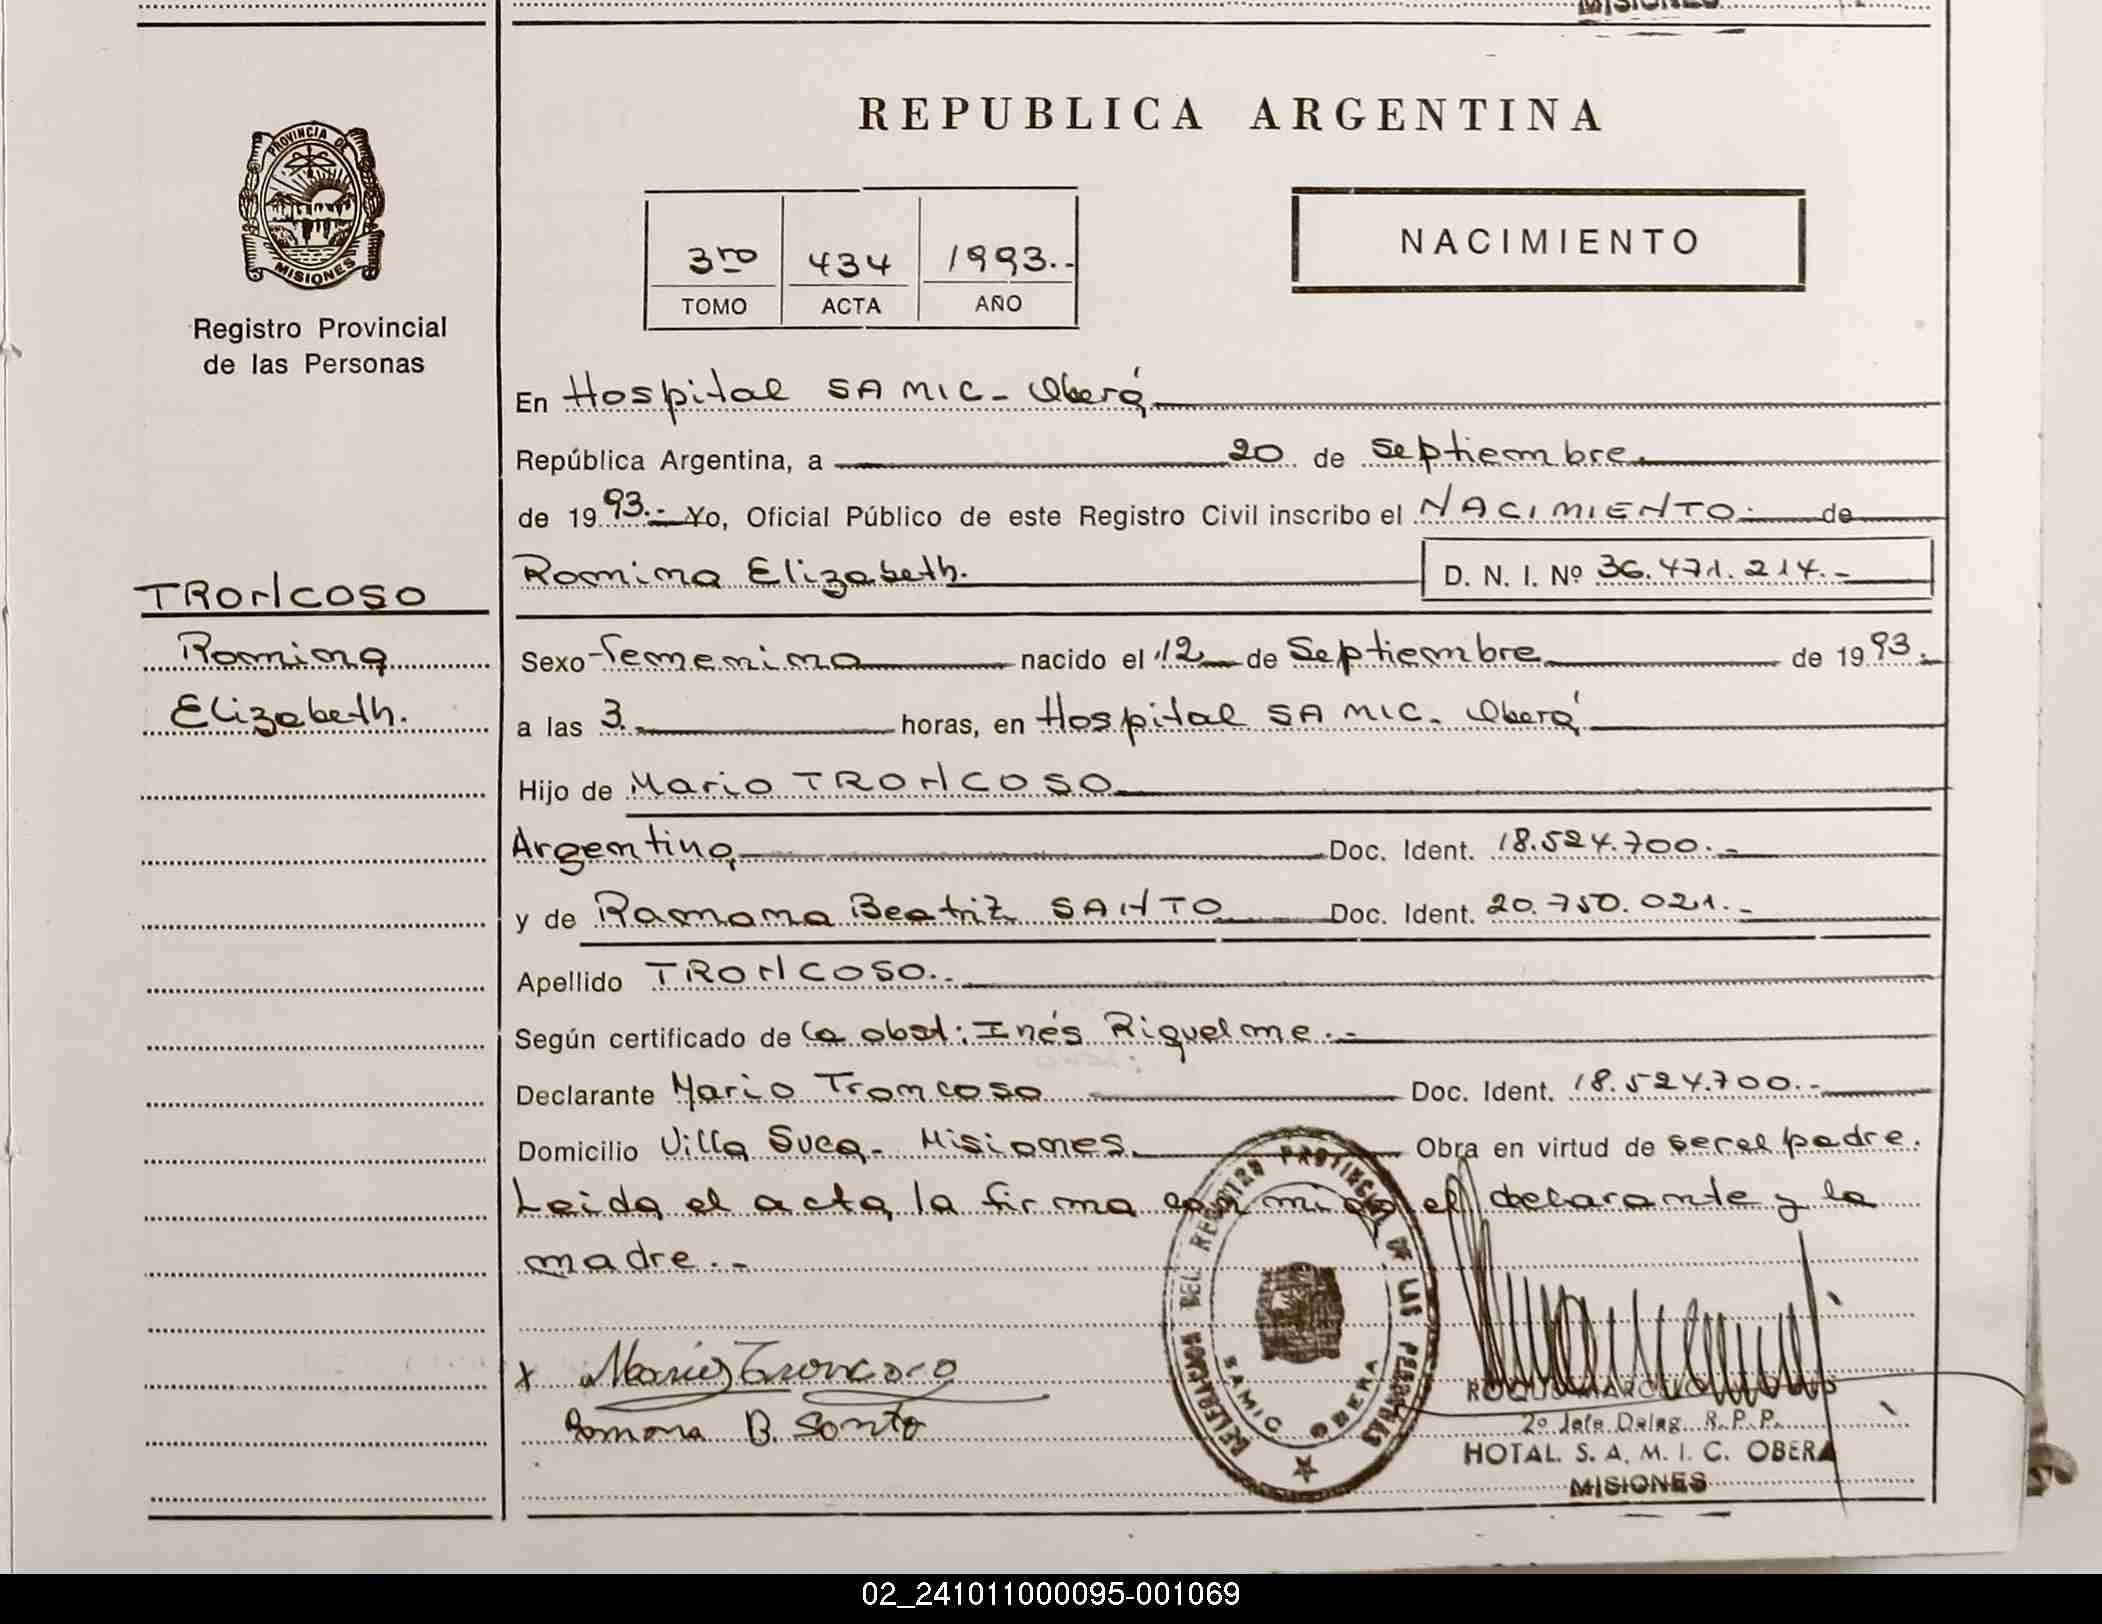 MISIONES
REPUBLICA ARGENTINA
PROVINCIA DE
MISIONES
Registro Provincial
de las Personas
3ro 434 1993.-
TOMO ACTA AÑO
NACIMIENTO
En Hospital SAMIC - Oberá
República Argentina, a 20 de Septiembre.
de 1993.- Yo, Oficial Público de este Registro Civil inscribo el NACIMIENTO.- de
Romina Elizabeth. D. N. I. Nº 36.471.214.-
TRONCOSO
Romina
Elizabeth.
Sexo Femenino nacido el 12 de Septiembre de 1993.-
a las 3. horas, en Hospital SAMIC - Oberá
Hijo de Mario TRONCOSO
Argentina Doc. Ident. 18.524.700.-
y de Ramona Beatriz SANTO Doc. Ident. 20.750.021.-
Apellido TRONCOSO.-
Según certificado de la obst: Inés Riquelme.-
Declarante Mario Troncoso Doc. Ident. 18.524.700.-
Domicilio Villa Suca - Misiones. Obra en virtud de ser el padre.
Leida el acta, la firma con migo el declarante y la
madre.-
DELEGACION DEL REGISTRO PROVINCIAL DE LAS PERSONAS
SAMIC OBERA
x Mario Troncoso
Ramona B. Santo
2º Jefe Deleg. R. P. P.
HOTAL. S. A. M. I. C. OBERA
MISIONES
02_241011000095-001069